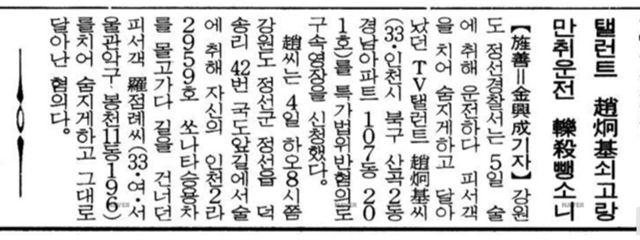 탤런트 趙炯基쇠고랑
만취운전 轢殺뺑소니
【旌善=金興成기자】 강원
도 정선경찰서는 5일 술
에 취해 운전하다 피서객
을 치어 숨지게하고 달아
났던 TV탤런트 趙炯基씨
(33·인천시 북구 산곡2동
경남아파트 107동 20
1호)를 특가법위반혐의로
구속영장을 신청했다.
趙씨는 4일 하오8시쯤
강원도 정선군 정선읍 덕
송리 42번 국도앞길에서 술
에 취해 자신의 인천2라
2959호 쏘나타승용차
를 몰고가다 길을 건너던
피서객 羅점례씨(33·여·서
울관악구 봉천11동196)
를치어 숨지게하고 그대로
달아난 혐의다.